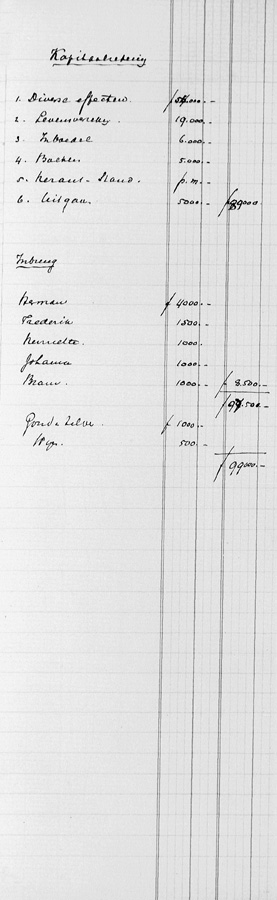 Kapitaalrekening
1. Diverse effecten f 54.000.-
2. Levensverzekg 19.000.-
3. Inboedel 6.000.-
4. Boeken 5.000.-
5. p.m.
6. 5000.- f 89000
Inbreng
Herman f 4000.-
Frederik 1500.-
Henriette 1000.
Johanna 1000.-
Bram. 1000.- f 8.500.-
f 97.500.-
Goud & Zilver f 1000.-
500.-
f 99000.-